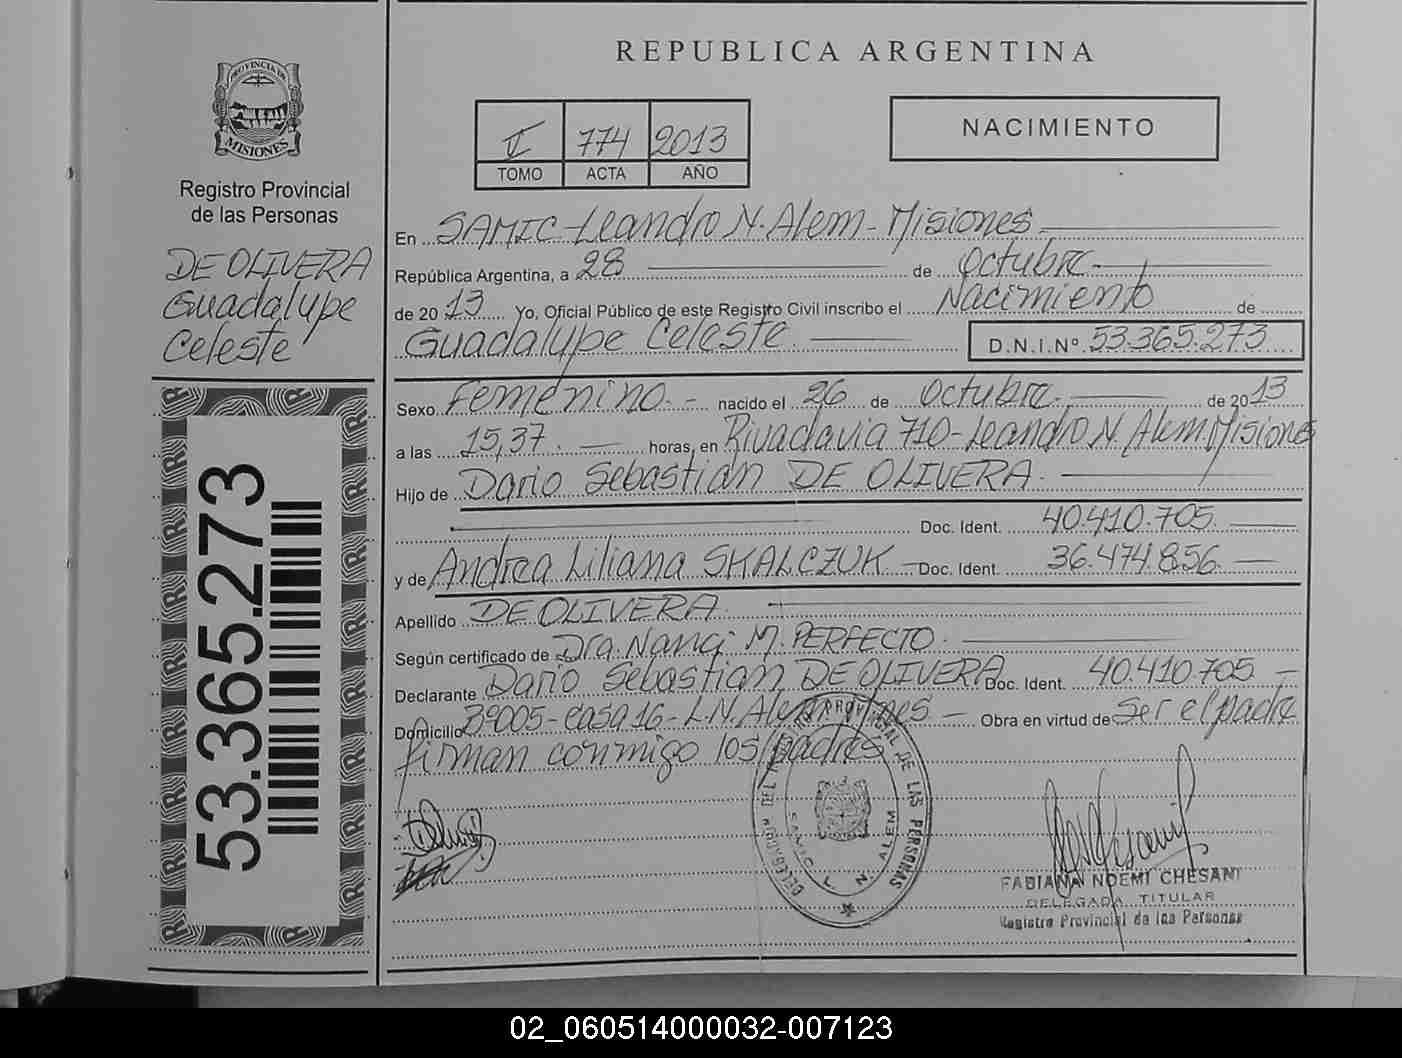 PROVINCIA DE
MISIONES
Registro Provincial
de las Personas
DE OLIVERA
Guadalupe
Celeste
53.365.273
REPUBLICA ARGENTINA
774 2013
TOMO ACTA AÑO
NACIMIENTO
En SAMIC-Leandro N. Alem-Misiones
República Argentina, a 28 de Octubre
de 2013 Yo, Oficial Público de este Registro Civil inscribo el Nacimiento de
Guadalupe Celeste D.N.I.Nº 53.365.273
Sexo Femenino.- nacido el 26 de Octubre de 2013
a las 15,37. horas, en Rivadavia 710-Leandro N. Alem.Misiones
Hijo de Dario Sebastian DE OLIVERA.
Doc. Ident. 40.410.705
y de Andrea Liliana SKALCZUK - Doc. Ident. 36.474.856
Apellido DE OLIVERA
Según certificado de Dra. Nanci M. PERFECTO.
Declarante Dario Sebastian DE OLIVERA Doc. Ident. 40.410.705 -
Domicilio Bº005-Casa16-L.N. Alem-Mnes - Obra en virtud de Ser el padre
firman conmigo los padres
PROVINCIAL DE LAS PERSONAS
SAMIC L. N. ALEM
FABIANA NOEMI CHESANI
DELEGADA TITULAR
Registro Provincial de las Personas
02_060514000032-007123